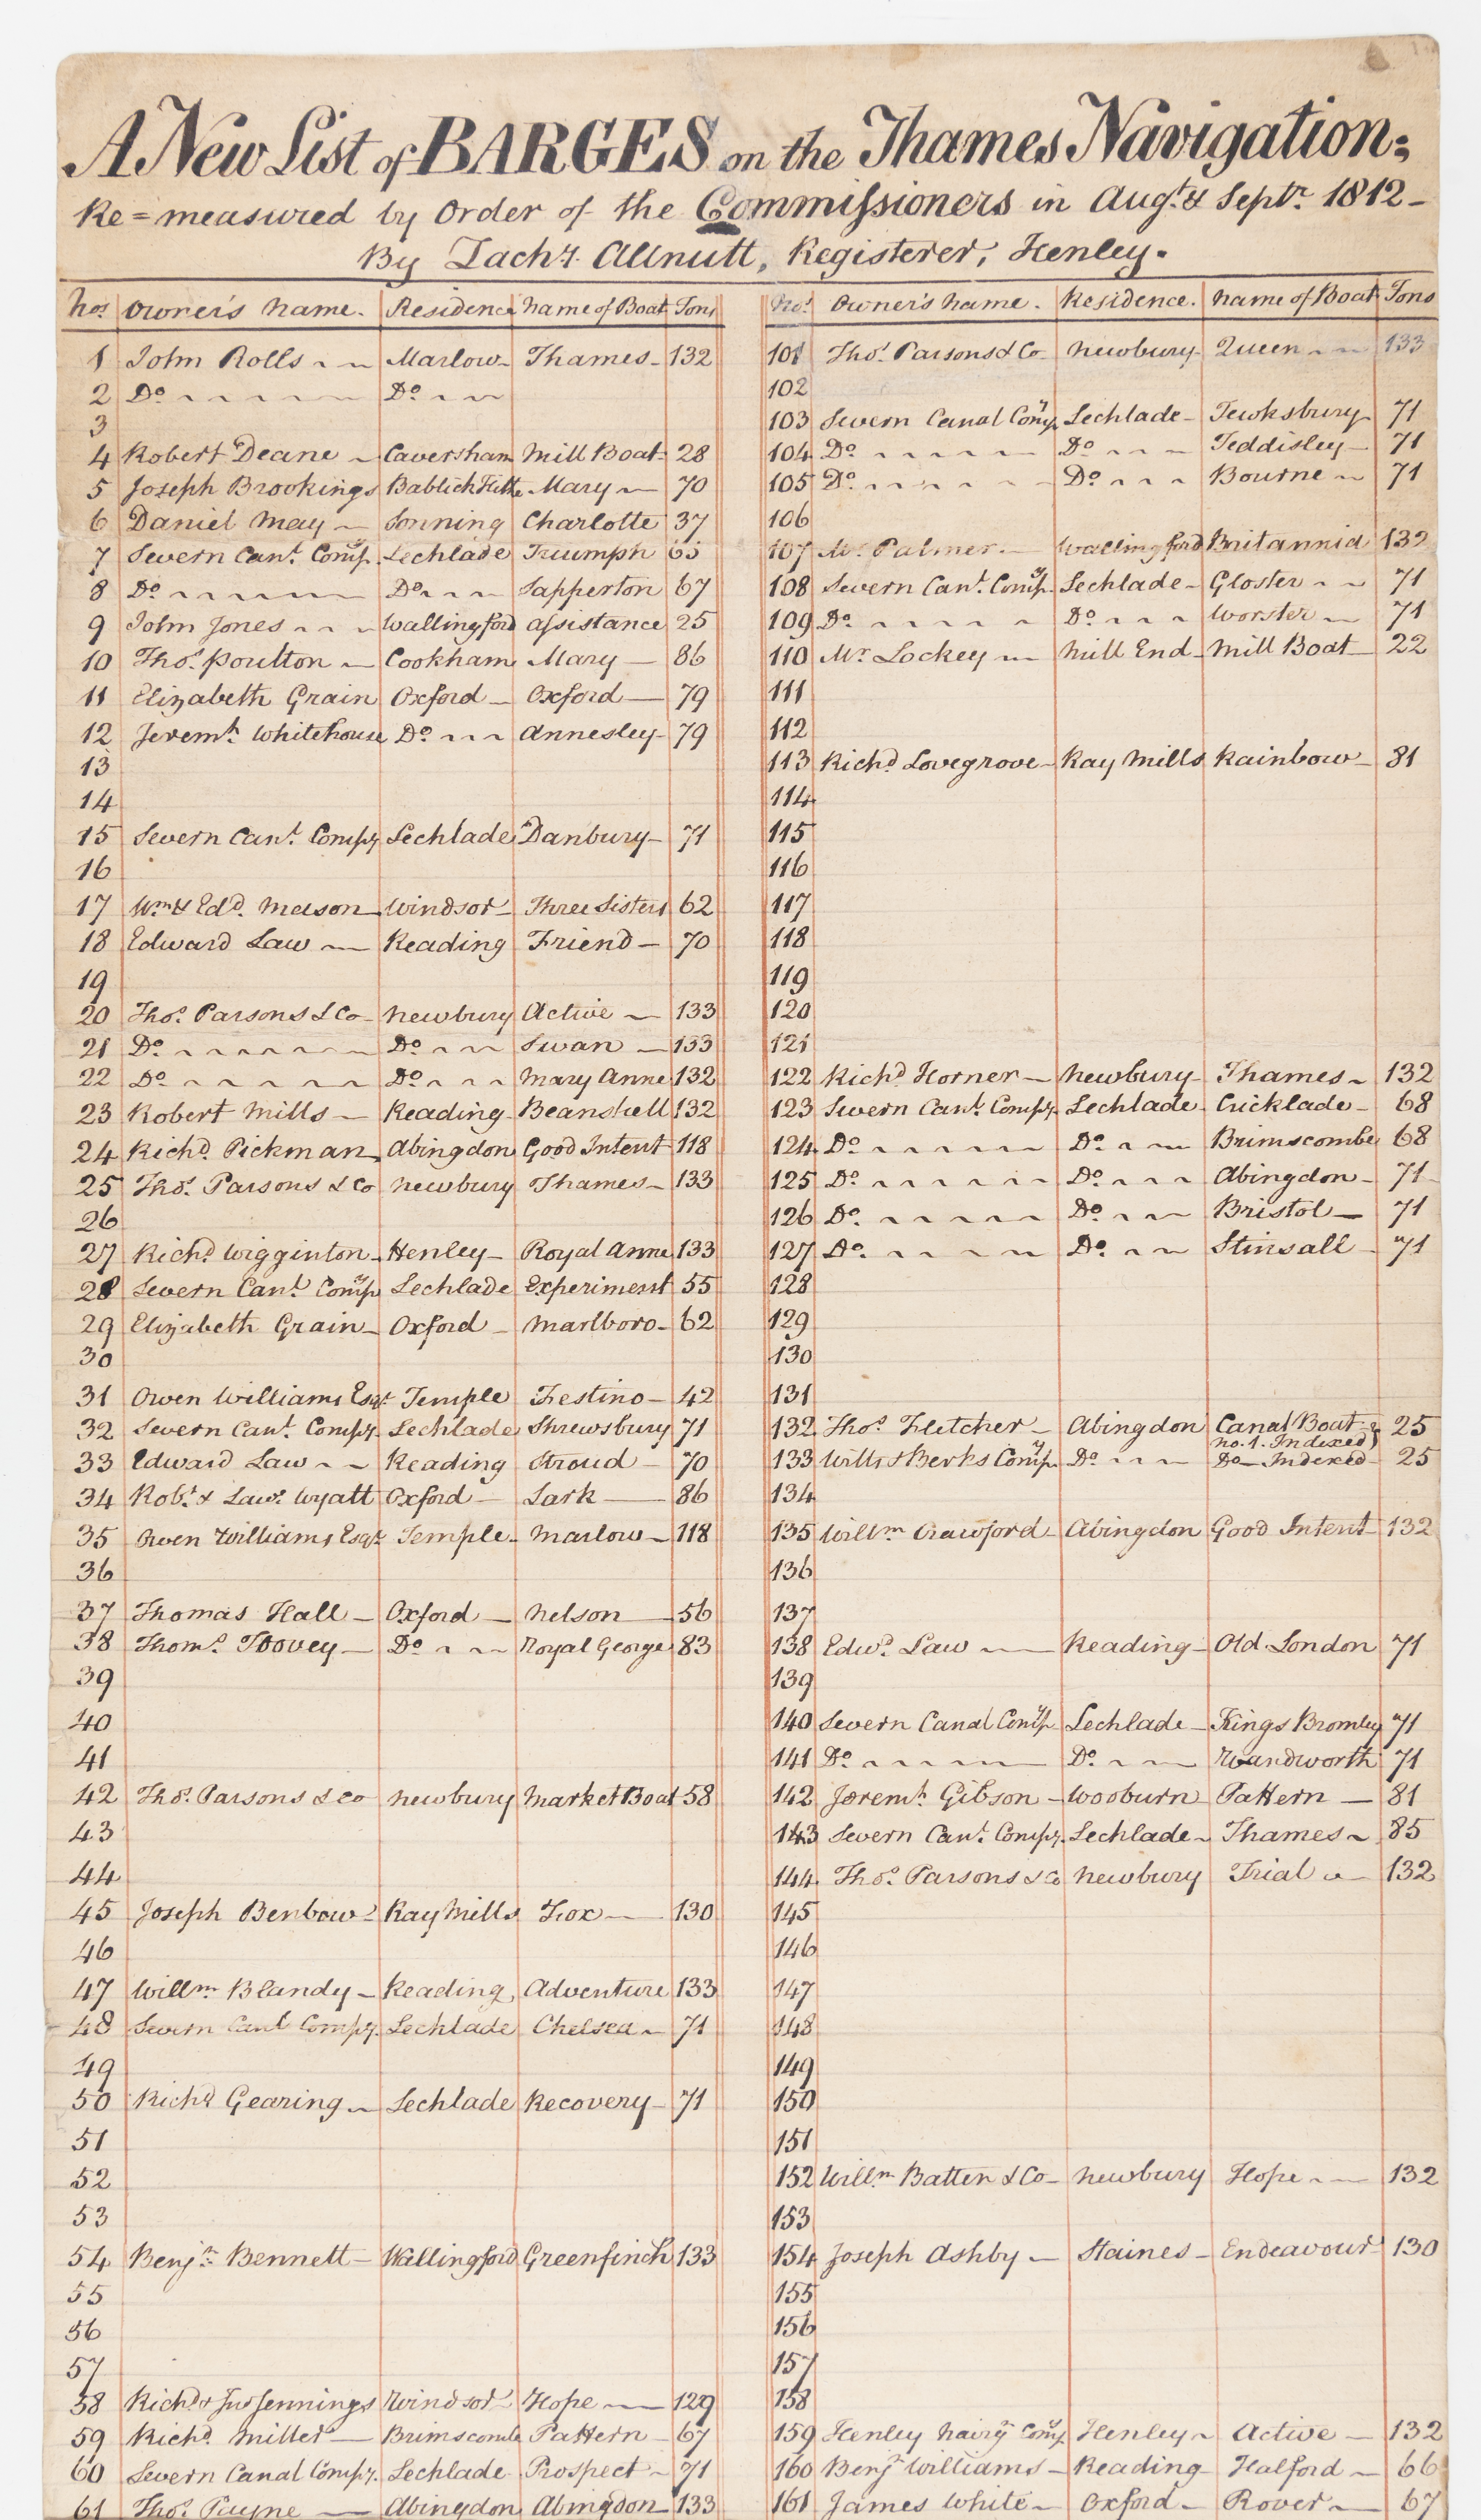 A New List of BARGES on the Thames Navigation;
Re=measured by Order of the Commissioners in Augt. & Septr. 1812-
By Zachy. Allnutt, Registerer, Henley.
Nos. Owner's Name. Residence Name of Boat Tons
1 John Rolls Marlow Thames 132
2 Do Do
3
4 Robert Deane Caversham Mill Boat 28
5 Joseph Brookings Bablick Hithe Mary 70
6 Daniel May Sonning Charlotte 37
7 Severn Canl. Compy. Lechlade Triumph 65
8 Do Do Sapperton 67
9 John Jones Wallingford Assistance 25
10 Thos. Poulton Cookham Mary 86
11 Elizabeth Grain Oxford Oxford 79
12 Jeremh. Whitehouse Do Annesley 79
13
14
15 Severn Canl. Compy. Lechlade Danbury 71
16
17 Wm. & Edd. Mason Windsor Three Sisters 62
18 Edward Law Reading Friend 70
19
20 Thos. Parsons & Co Newbury Active 133
21 Do Do Swan 133
22 Do Do Mary Anne 132
23 Robert Mills Reading Beanshell 132
24 Richd. Pickman Abingdon Good Intent 118
25 Thos. Parsons & Co Newbury Thames 133
26
27 Richd. Wigginton Henley Royal Anne 133
28 Severn Canl. Compy Lechlade Experiment 55
29 Elizabeth Grain Oxford Marlboro 62
30
31 Owen Williams Esqr. Temple Festino 42
32 Severn Canl. Compy. Lechlade Shrewsbury 71
33 Edward Law Reading Stroud 70
34 Robt. & Lawe. Wyatt Oxford Lark 86
35 Owen Williams Esqr. Temple Marlow 118
36
37 Thomas Hall Oxford Nelson 56
38 Thoms. Toovey Do Royal George 83
39
40
41
42 Thos. Parsons & Co Newbury Market Boat 58
43
44
45 Joseph Benbow Ray Mills Fox 130
46
47 Willm. Blandy Reading Adventure 133
48 Severn Canl Compy. Lechlade Chelsea 71
49
50 Richd Gearing Lechlade Recovery 71
51
52
53
54 Benjn. Bennett Wallingford Greenfinch 133
55
56
57
58 Richd & Jno Jennings Windsor Hope 129
59 Richd. Miller Brimscombe Pattern 67
60 Severn Canal Compy. Lechlade Prospect 71
61 Thos. Payne Abingdon Abingdon 133
Nos. Owner's Name. Residence. Name of Boat Tons
101 Thos. Parsons & Co Newbury Queen 133
102
103 Severn Canal Compy. Lechlade Tewksbury 71
104 Do Do Teddisley 71
105 Do Do Bourne 71
106
107 Mr. Palmer Wallingford Britannia 132
108 Severn Canl. Compy. Lechlade Gloster 71
109 Do Do Worster 71
110 Mr. Lockey Mill End Mill Boat 22
111
112
113 Richd. Lovegrove Ray Mills Rainbow 81
114
115
116
117
118
119
120
121
122 Richd. Horner Newbury Thames 132
123 Severn Canl. Compy. Lechlade Cricklade 68
124 Do Do Brimscombe 68
125 Do Do Abingdon 71
126 Do Do Bristol 71
127 Do Do Stinsall 71
128
129
130
131
132 Thos. Fletcher Abingdon Canal Boat 25
No. 1. Indexed
133 Wilts & Berks Compy. Do Do Indexed 25
134
135 Willm. Crawford Abingdon Good Intent 132
136
137
138 Edwd. Law Reading Old London 71
139
140 Severn Canal Compy Lechlade Kings Bromley 71
141 Do Do Wandworth 71
142 Jeremh. Gibson Wooburn Pattern 81
143 Severn Canl. Compy. Lechlade Thames 85
144 Thos. Parsons & Co Newbury Trial 132
145
146
147
148
149
150
151
152 Willm. Batten & Co Newbury Hope 132
153
154 Joseph Ashby Staines Endeavour 130
155
156
157
158
159 Henley Navign. Compy. Henley Active 132
160 Benjn Williams Reading Halford 66
161 James White Oxford Rover 67